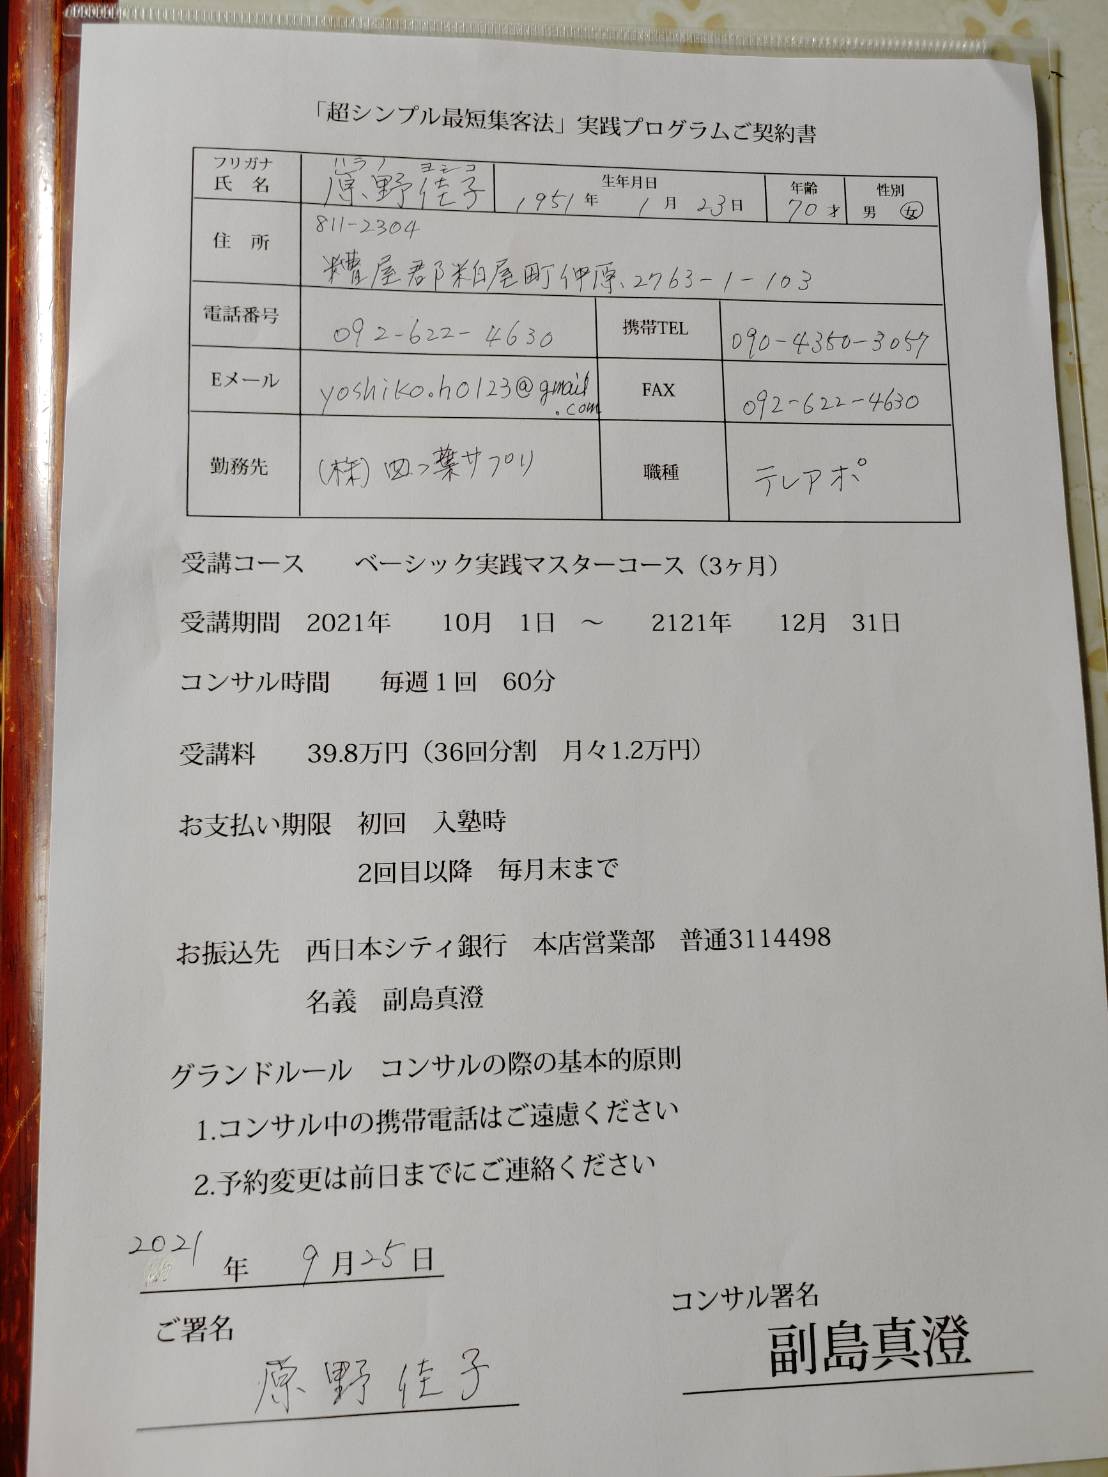 「超シンプル最短集客法」実践プログラムご契約書
フリガナ ハラノ ヨシコ
氏名 原野佳子 生年月日 1951年 1月 23日 年齢 70才 性別 男 女
住所 811-2304
糟屋郡粕屋町仲原、2763-1-103
電話番号 092-622-4630 携帯TEL 090-4350-3057
Eメール yoshiko.h0123@gmail.com FAX 092-622-4630
勤務先 (株)四つ葉サプリ 職種 テレアポ
受講コース ベーシック実践マスターコース（3ヶ月）
受講期間 2021年 10月 1日 〜 2121年 12月 31日
コンサル時間 毎週1回 60分
受講料 39.8万円（36回分割 月々1.2万円）
お支払い期限 初回 入塾時
2回目以降 毎月末まで
お振込先 西日本シティ銀行 本店営業部 普通3114498
名義 副島真澄
グランドルール コンサルの際の基本的原則
1.コンサル中の携帯電話はご遠慮ください
2.予約変更は前日までにご連絡ください
2021年 9月25日
ご署名 コンサル署名
原野佳子 副島真澄